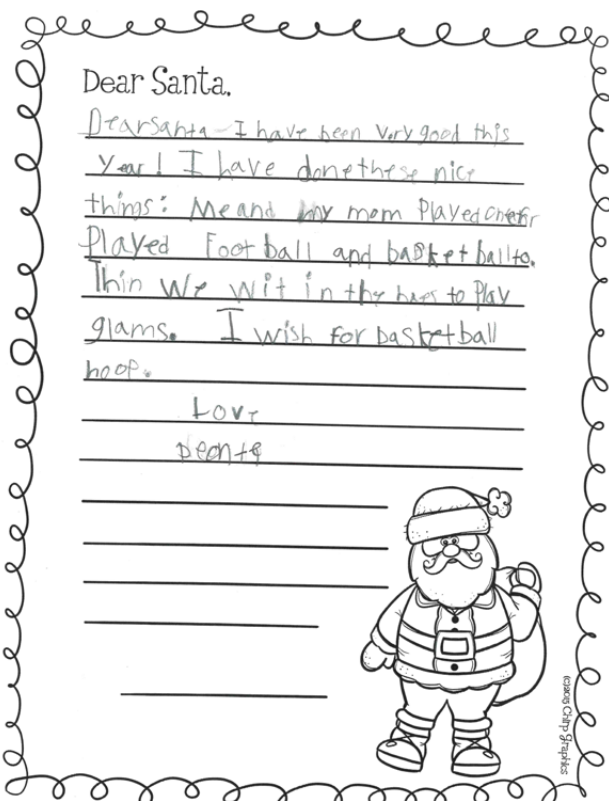 Dear Santa,
Dearsanta I have been very good this
year! I have donethese nice
things: Me and my mom Played
Played Foot ball and basketballto.
Thin We wit in the to Play
glams. I wish for basketball
hoop.
Love
Deonte
(c)2015 Chirp Graphics